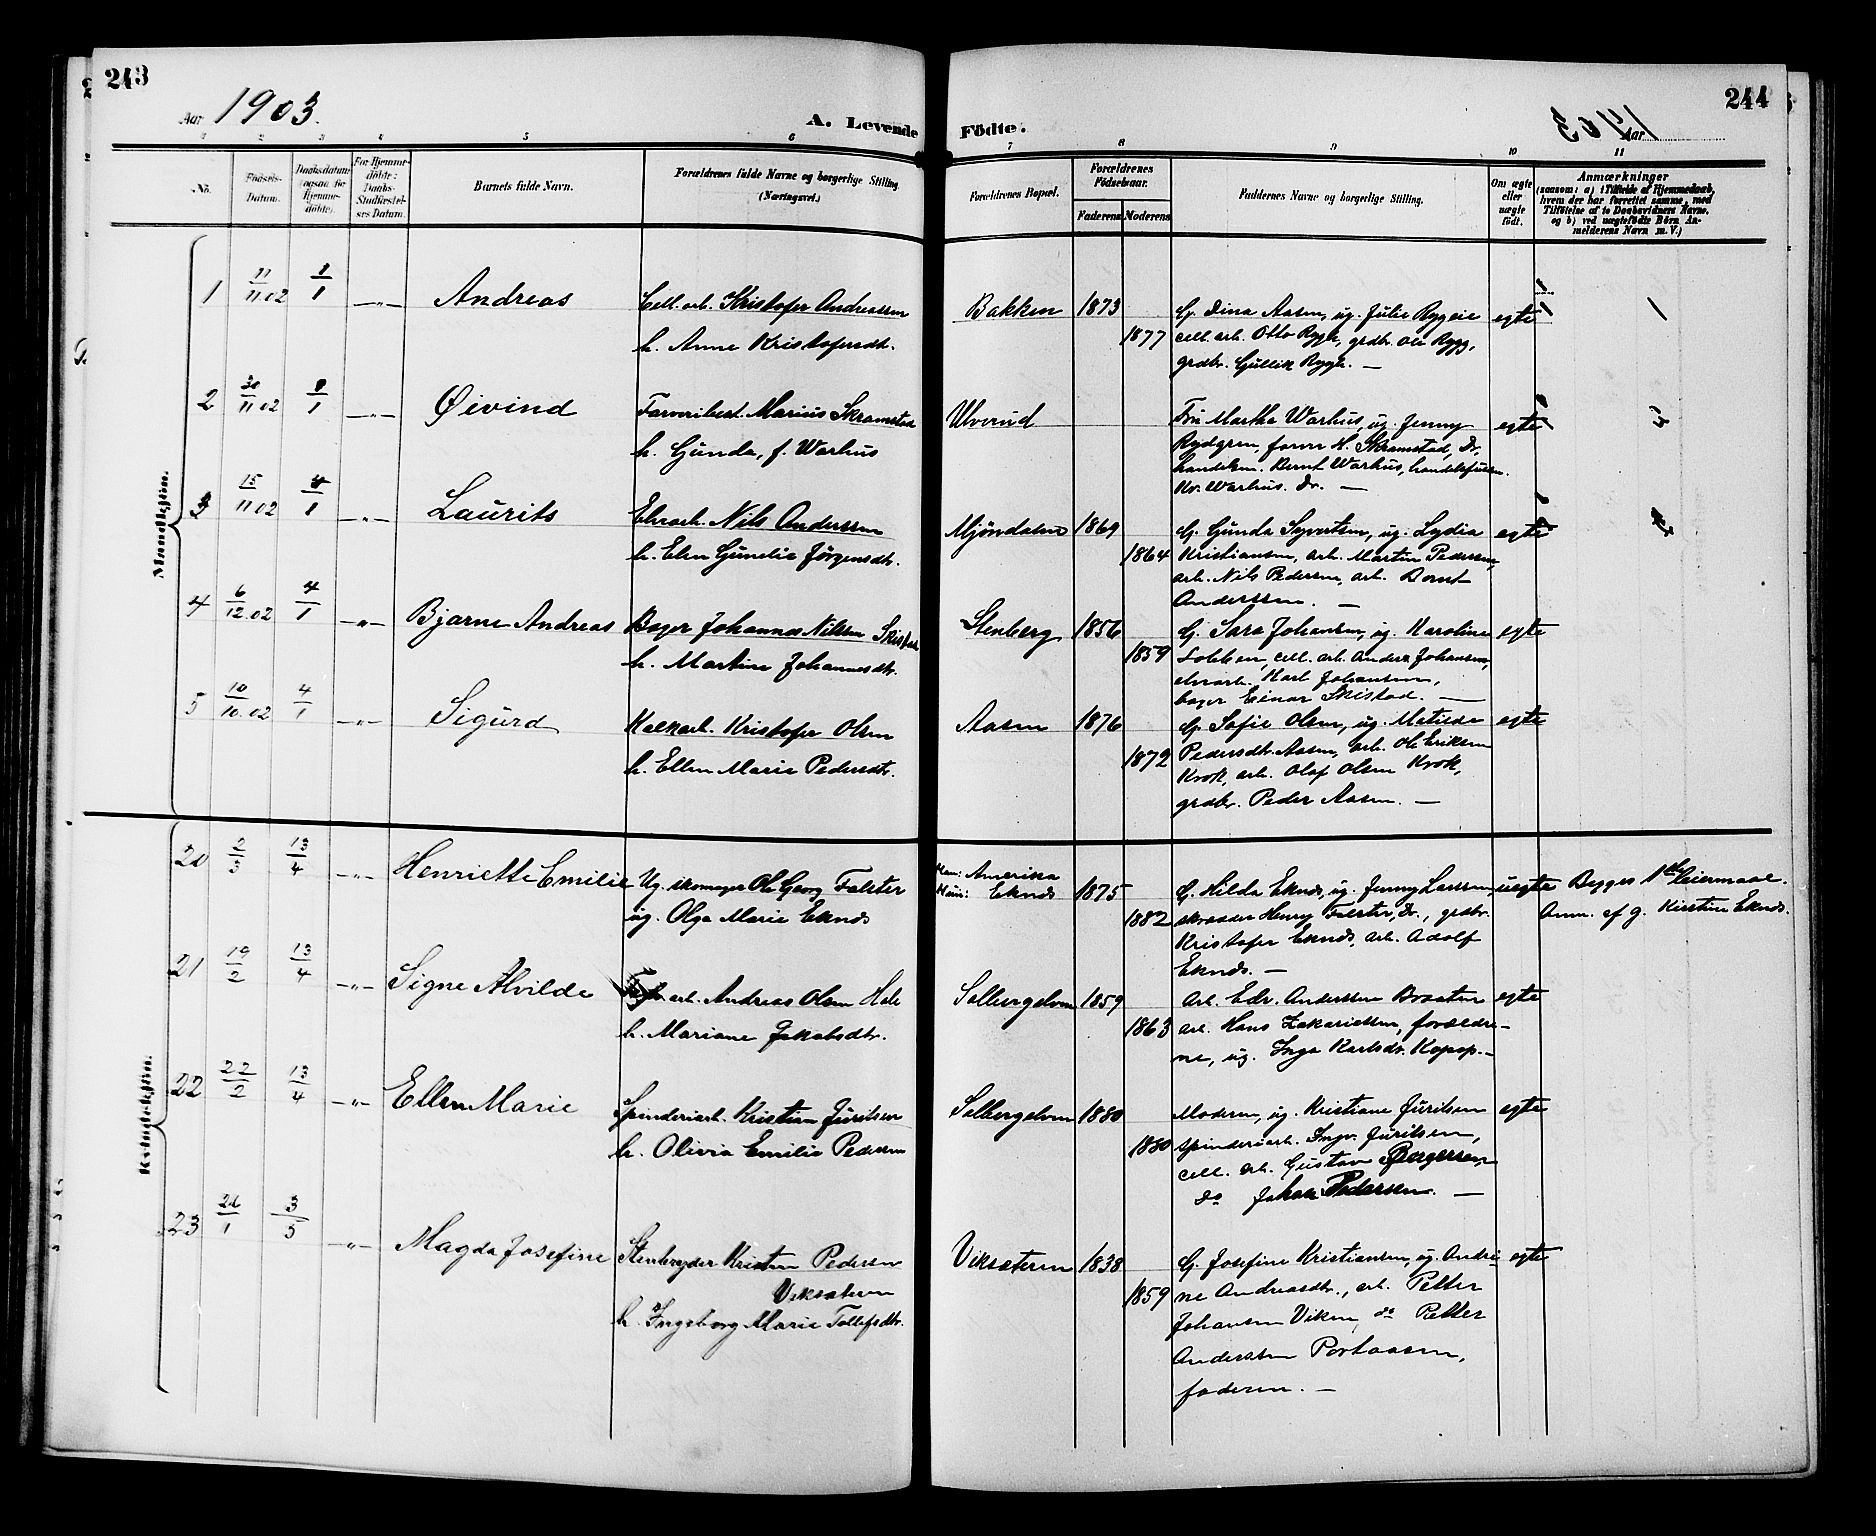 243
244
Aar 1903.
A. Levende Födte.
Aar 1903
1 2 3 4 5 6 7 8 9 10 11
No.
Födsels-Datum.
Daabsdatum (ogsaa for Hjemmedöbte).
For Hjemmedöbte: Daabs-Stadfæstelses Datum.
Barnets fulde Navn.
Forældrenes fulde Navne og borgerlige Stilling. (Næringsvei.)
Forældrenes Bopæl.
Forældrenes Födselsaar.
Faderens Moderens
Faddernes Navne og borgerlige Stilling.
Om ægte eller uægte födt.
Anmærkninger
(saasom: a) i Tilfælde af Hjemmedaab, hvem der har forrettet samme, med Tilföielse af to Daabsvidners Navne, og b) ved uægtefödte Börn Anmelderens Navn m. V.)
Mandkjön.
1 11/11.02 1/1 —„— Andreas
Cell. arb. Kristofer Andreassen
h. Anne Kristofersdt.
Bakken 1873
1877
G. Dina Aasen, ug. Julie Rygeie
cell. arb. Otto Rygh, grdbr. Ole Rygg,
grdbr. Gullik Rygh. —
egte
2 30/11.02 1/1 —„— Øivind
Farveribest. Marius Skramstad
h. Gunda, f. Warhus
Ulverud
Fru Martha Warhus, ug. Jenny
Rydgren, farver H. Skramstad, Dr.
handelsm. Bernt Warhus, handelsfuldm.
Kr. Warhus. Dr. —
egte
3 15/11 02 4/1 —„— Laurits
Elvearb. Nils Anderssen
h. Elen Gunelie Jørgensdt.
Mjøndalen 1869
1864
G. Gunda Syvertsen, ug. Lydia
Kristiansen, arb. Martin Pedersen,
arb. Nils Pedersen, arb. Bernt
Anderssen. —
egte
4 6/12.02 4/1 —„— Bjarne Andreas
Bager Johannes Nilssen Skistad
h. Martine Johannesdt.
Stenberg 1856
1859
G. Sara Johansen, ug. Karoline
Solbken, cell. arb. Anders Johansen,
elvearb. Karl Johansen,
bager Einar Skistad. —
egte
5 10/10.02 4/1 —„— Sigurd
Kalkarb. Kristofer Olsen
h. Ellen Marie Pedersdt.
Aasen 1876
1872
G. Sofie Olsen, ug. Matilde
Pedersdt. Aasen, arb. Ole Eriksen
Krok, arb. Olaf Olsen Krok,
grdbr. Peder Aasen. —
egte
Kvindekjön.
20 2/3 13/4 —„— Henriette Emilie
Ug. skomager Ole Georg Falster
ug. Olga Marie Eknes
Han: Amerika
Hun: Eknes
1875
1882
G. Hilda Eknes, ug. Jenny Larssen,
skrædder Henry Falster, Dr., grdbr.
Kristofer Eknes, arb. Adolf
Eknes. —
uegte
Begges 1ste leiermaal.
Anm. af g. Kirstine Eknes.
21 19/2 13/4 —„— Signe Alvilde
arb. Andreas Olsen Hale
h. Mariane Jakobsdtr.
Solbergelven 1859
1863
Arb. Edv. Anderssen Braaten
arb. Hans Zakariassen, forældre-
ne, ug. Inga Karlsdt. Kopop. —
egte
22 22/2 13/4 —„— Ellen Marie
Spinderiarb. Kristian Jurilsen
h. Olivia Emilie Pedersen
Solbergelven 1880
1880
Moderen, ug. Kristiane Jurilsen
spinderiarb. Ingv. Jurilsen,
cell. arb. Gustav Børgersen,
do Johan Pedersen. —
egte
23 26/1 3/5 —„— Magda Josefine
Stenbryder Kristen Pedersen
Viksæteren
h. Ingeborg Marie Tollefsdtr.
Viksæteren 1838
1859
G. Josefine Kristiansen, ug. Andri-
ne Andreasdtr., arb. Petter
Johansen Viken, do Petter
Anderssen Portaasen,
faderen. —
egte